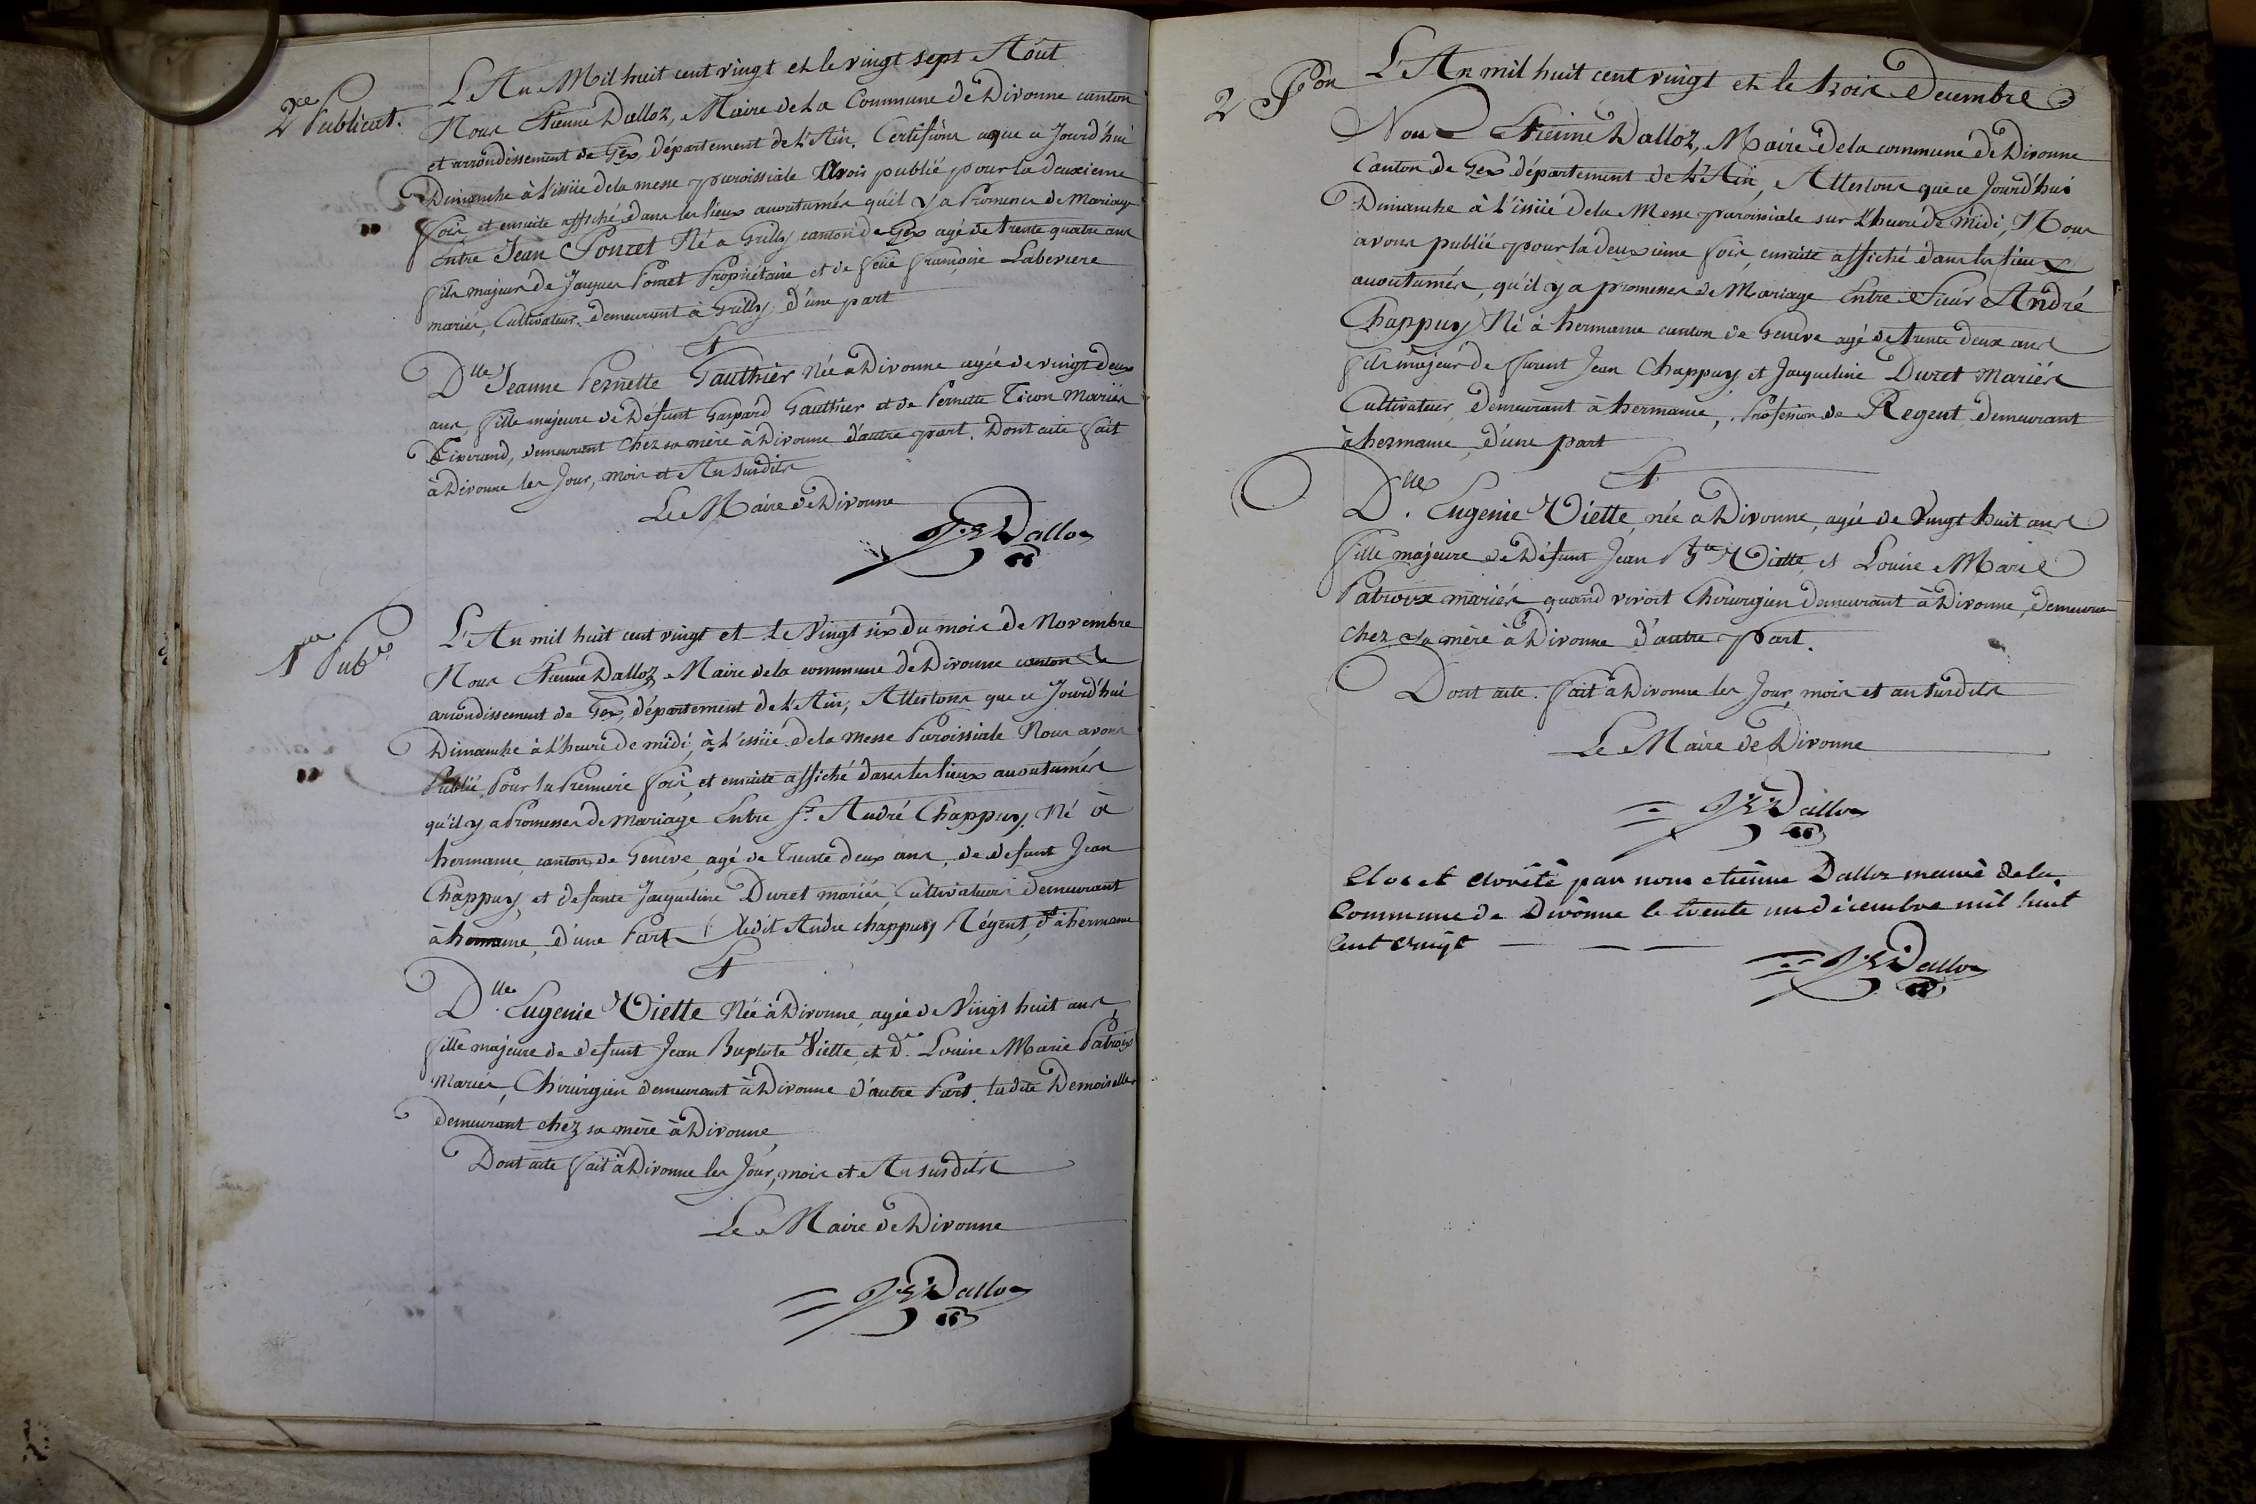 2.e Publicat.
L'An Mil huit cent vingt et le vingt sept Août
Nous Etienne Dalloz, Maire de La Commune de Divonne canton
et arrondissement de Gex, département de L'Ain, Certifions que ce Jourd'hui
Dimanche à L'issüe de la messe paroissiale Avoir publié pour la deuxieme
fois et ensuite affiché dans les lieux acoutumés qu'il y a Promesses de Mariage
Entre Jean Poncet Né a Grilly canton de Gex agé de trente quatre ans
fils majeur de Jacques Poncet Propriétaire et de feüe françoise Laberiere
mariés, Cultivateur, demeurant à Grilly, d'une part
Et
D.lle Jeanne Pernette Gauthier Née à Divonne agée de vingt deux
ans, fille majeure de Défunt Gaspard Gauthier et de Pernette Ticon Mariés
Tixerand, demeurant Chez sa mère à Divonne d'autre part. Dont acte fait
à Divonne les Jour, mois et An susdits
Le Maire de Divonne
Dalloz
1.re Pub.on
L'An mil huit cent vingt et Le Vingt six du mois de Novembre
Nous Etienne Dalloz Maire de la commune de Divonne canton de
arrondissement de Gex, département de L'Ain, Attestons que ce Jourd'hui
Dimanche à L'heure de midi, à L'issüe de la messe Paroissiale Nous avons
Publié Pour la Premiere fois, et ensuite affiché dans les lieux acoutumés
qu'il y a Promesses de Mariage Entre S.r André Chappuy, Né à
hermance, canton de Genève, agé de Trente deux ans, de defunt Jean
Chappuy, et defunte Jacqueline Duret mariés, Cultivateurs demeurant
à hermance, d'une Part Ledit Andre chappuy Régent, d.t à hermance
Et
D.lle Eugenie Viette Née à Divonne, agée de Vingt huit ans,
fille majeure de defunt Jean Baptiste Viette, et d.e Louise Marie Patroix
Mariés, Chirurgien demeurant à Divonne d'autre Part. ladite Demoiselle
demeurant chez sa mère à Divonne
Dont acte fait à Divonne les Jour, mois et An susdits
Le Maire de Divonne
Dalloz
2 P.on
L'An mil huit cent vingt et le trois Decembre
Nous Etienne Dalloz, Maire de la commune de Divonne
Canton de Gex département de L'Ain, Attestons que ce Jourd'hui
Dimanche à L'issüe de la Messe paroissiale sur L'heure de midi, Nous
avons publié pour la deuxieme fois, ensuite affiché dans les lieux
acoutumés, qu'il y a promesses de Mariage Entre Sieur André
Chappuy Né à hermance canton de Genève agé de trente deux ans
fils majeur de furent Jean Chappuy et Jacqueline Duret Mariés
Cultivateurs demeurant à hermance, Profession de Regent demeurant
à hermance, d'une part
Et
D.lle Eugenie Viette, née a Divonne, agée de Vingt huit ans
fille majeure de Défunt Jean B.te Viette, et Louise Marie
Patroix mariés quand vivoit Chirurgien demeurant à Divonne, demeurant
chez sa mère à Divonne d'autre part.
Dont acte. fait à Divonne les Jour, mois et an susdits
Le Maire de Divonne
Dalloz
Clos et arrêté par nous etiènne Dalloz maire de la
Commune de Divonne le trente un décembre mil huit
Cent vingt
Dalloz